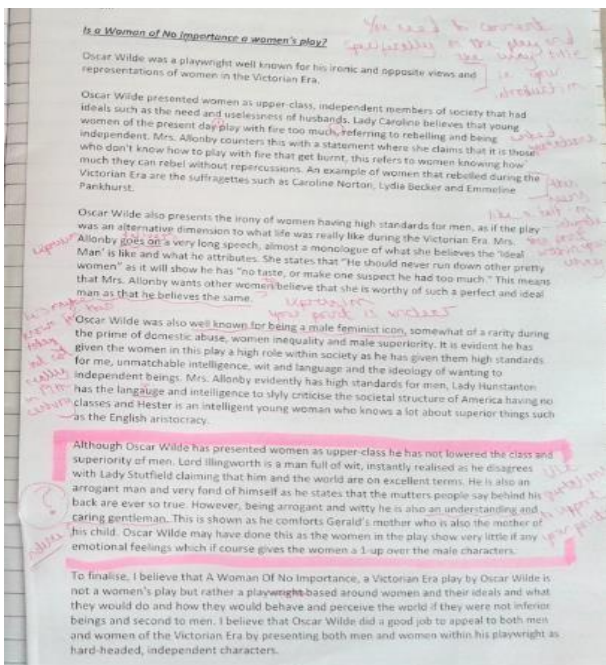 Is a Woman of No Importance a women's play?
You need to comment
specifically on the play and
the
in your
introduction
Oscar Wilde was a playwright well known for his ironic and opposite views and
representations of women in the Victorian Era.
Oscar Wilde presented women as upper-class, independent members of society that had
ideals such as the need and uselessness of husbands. Lady Caroline believes that young
women of the present day play with fire too much, referring to rebelling and being
independent. Mrs. Allonby counters this with a statement where she claims that it is those
who don't know how to play with fire that get burnt, this refers to women knowing how
much they can rebel without repercussions. An example of women that rebelled during the
Victorian Era are the suffragettes such as Caroline Norton, Lydia Becker and Emmeline
Pankhurst.
Oscar Wilde also presents the irony of women having high standards for men, as if the play
was an alternative dimension to what life was really like during the Victorian Era. Mrs.
Allonby goes on a very long speech, almost a monologue of what she believes the 'Ideal
Man' is like and what he attributes. She states that "He should never run down other pretty
women" as it will show he has "no taste, or make one suspect he had too much." This means
that Mrs. Allonby wants other women believe that she is worthy of such a perfect and ideal
man as that he believes the same.
expression
your point is unclear
Oscar Wilde was also well known for being a male feminist icon, somewhat of a rarity during
the prime of domestic abuse, women inequality and male superiority. It is evident he has
given the women in this play a high role within society as he has given them high standards
for me, unmatchable intelligence, wit and language and the ideology of wanting to
independent beings. Mrs. Allonby evidently has high standards for men, Lady Hunstanton
has the langauge and intelligence to slyly criticise the societal structure of America having no
classes and Hester is an intelligent young woman who knows a lot about superior things such
as the English aristocracy.
Although Oscar Wilde has presented women as upper-class he has not lowered the class and
superiority of men. Lord Illingworth is a man full of wit, instantly realised as he disagrees
with Lady Stutfield claiming that him and the world are on excellent terms. He is also an
arrogant man and very fond of himself as he states that the mutters people say behind his
back are ever so true. However, being arrogant and witty he is also an understanding and
caring gentleman. This is shown as he comforts Gerald's mother who is also the mother of
his child. Oscar Wilde may have done this as the women in the play show very little if any
emotional feelings which if course gives the women a 1-up over the male characters.
?
Use
quotations
to support
your point
To finalise, I believe that A Woman Of No Importance, a Victorian Era play by Oscar Wilde is
not a women's play but rather a playwright based around women and their ideals and what
they would do and how they would behave and perceive the world if they were not inferior
beings and second to men. I believe that Oscar Wilde did a good job to appeal to both men
and women of the Victorian Era by presenting both men and women within his playwright as
hard-headed, independent characters.